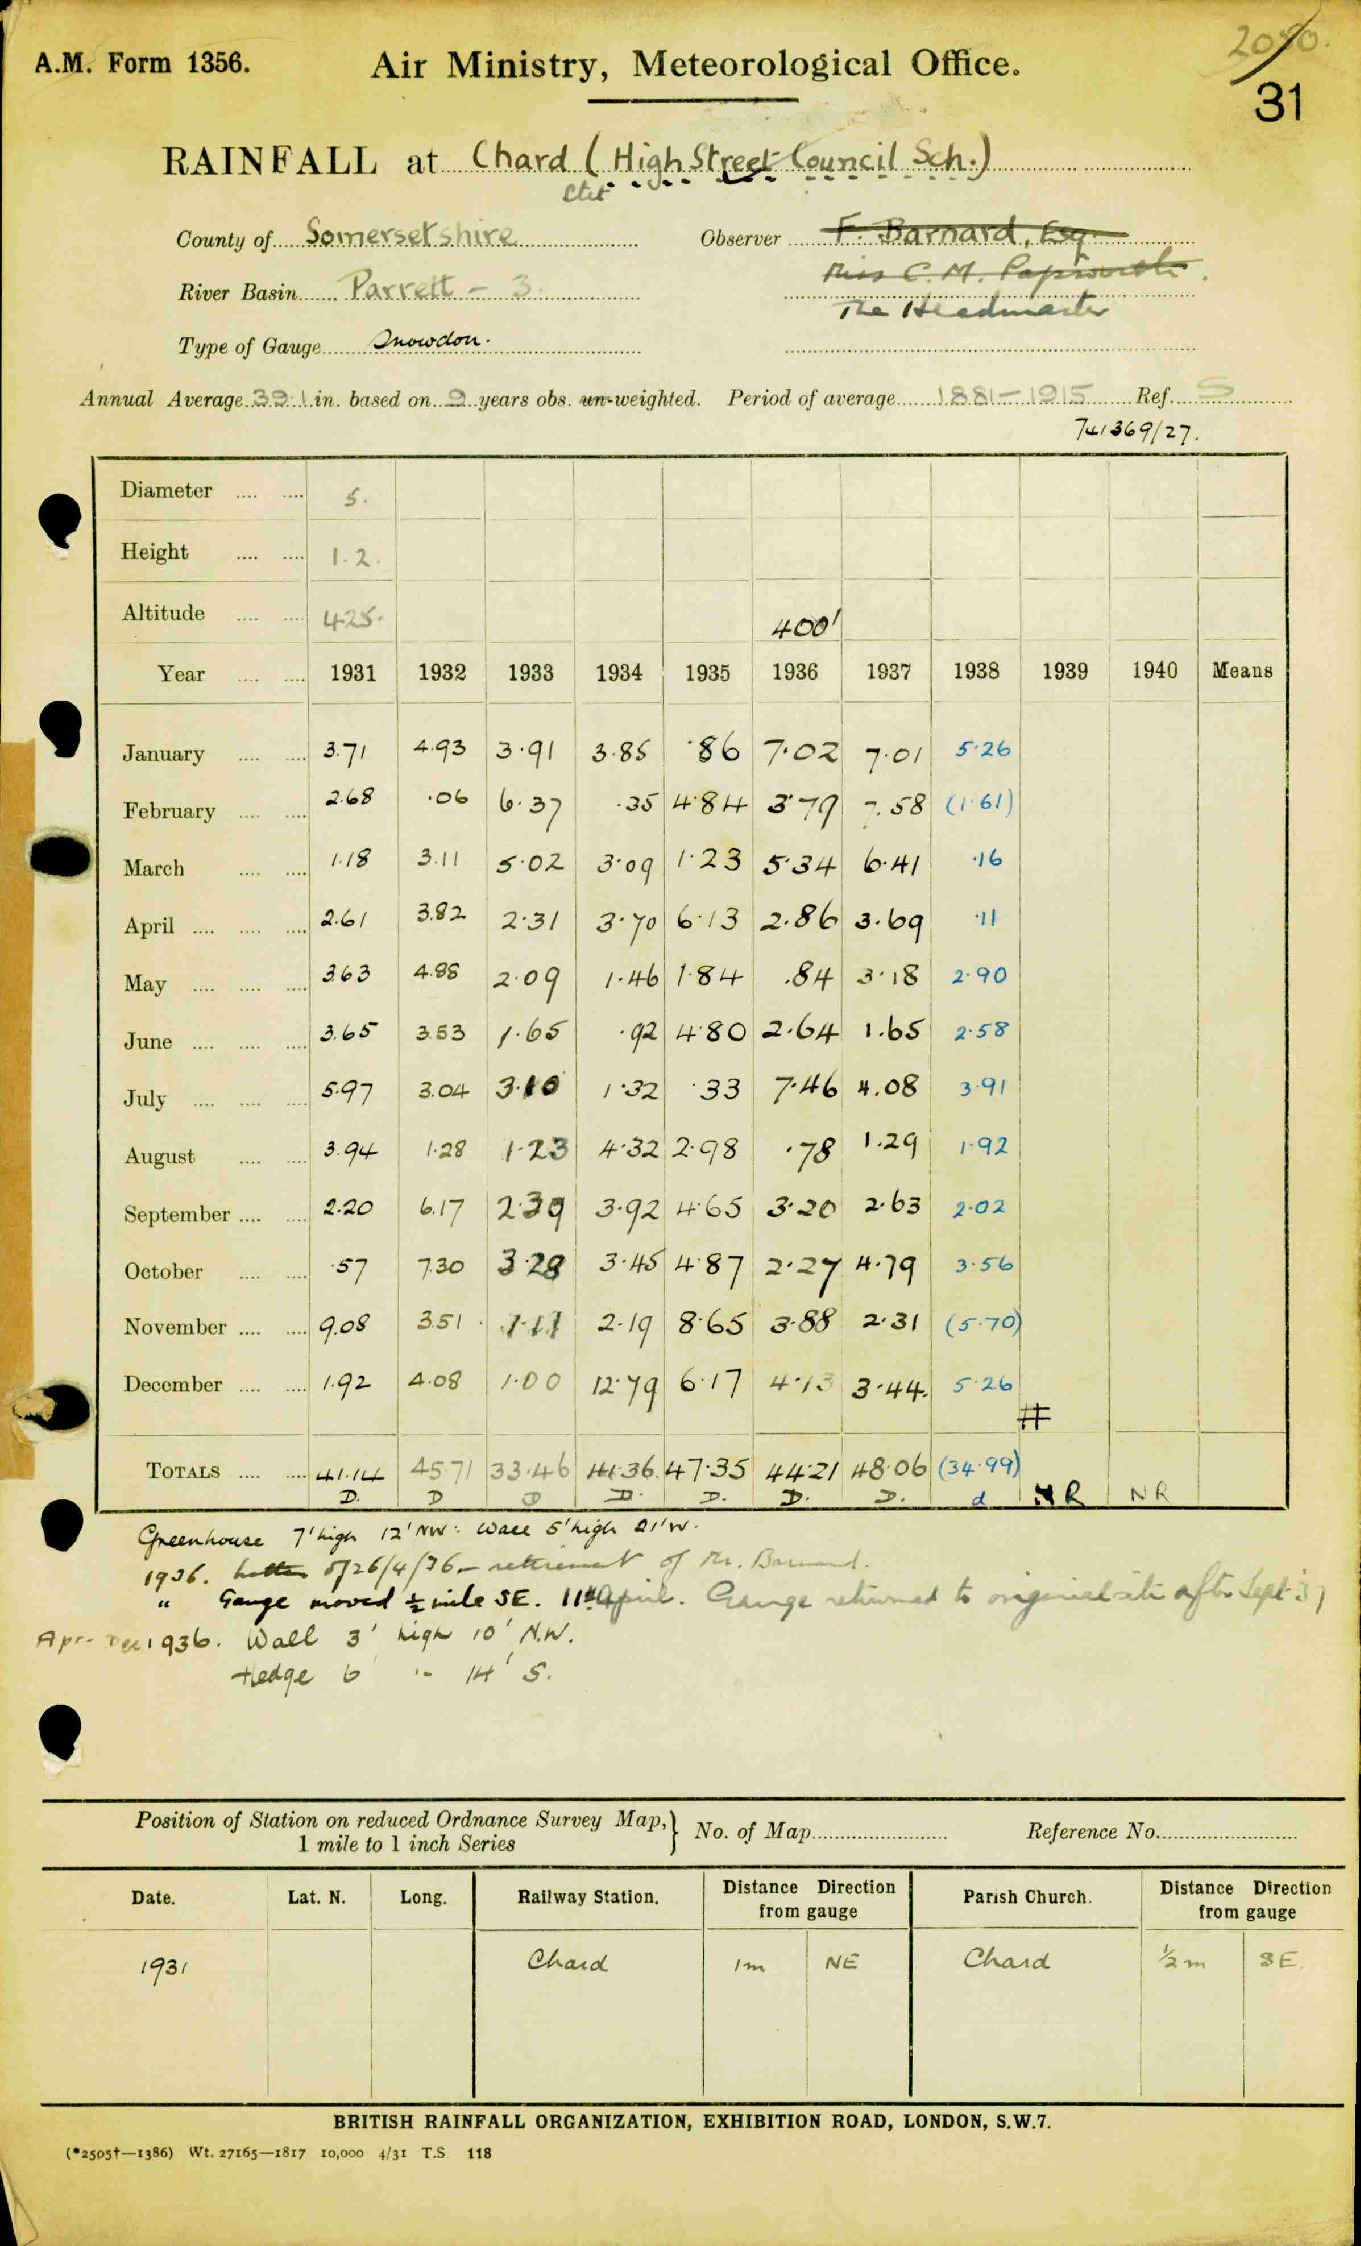 2080.
A.M. Form 1356. Air Ministry, Meteorological Office.
31
RAINFALL at Chard (High Street Council Sch.)
stet
County of Somersetshire Observer F. Barnard, Esq
Miss C. M. Papworth.
River Basin Parrett - 3.
The Headmaster
Type of Gauge Snowdon.
Annual Average 39.1 in. based on 9 years obs. un-weighted. Period of average 1881-1915 Ref. S
741369/27.
Diameter 5.
Height 1.2.
Altitude 425. 400'
Year 1931 1932 1933 1934 1935 1936 1937 1938 1939 1940 Means
January 3.71 4.93 3.91 3.85 .86 7.02 7.01 5.26
February 2.68 .06 6.37 .35 4.84 3.79 7.58 (1.61)
March 1.18 3.11 5.02 3.09 1.23 5.34 6.41 .16
April 2.61 3.82 2.31 3.70 6.13 2.86 3.69 .11
May 3.63 4.88 2.09 1.46 1.84 .84 3.18 2.90
June 3.65 3.53 1.65 .92 4.80 2.64 1.65 2.58
July 5.97 3.04 3.10 1.32 .33 7.46 4.08 3.91
August 3.94 1.28 1.23 4.32 2.98 .78 1.29 1.92
September 2.20 6.17 2.39 3.92 4.65 3.20 2.63 2.02
October .57 7.30 3.28 3.45 4.87 2.27 4.79 3.56
November 9.08 3.51 1.11 2.19 8.65 3.88 2.31 (5.70)
December 1.92 4.08 1.00 12.79 6.17 4.13 3.44. 5.26
#
TOTALS 41.14 45.71 33.46 41.36 47.35 44.21 48.06 (34.99)
D. D D D. D. D. D. d NR NR
Greenhouse 7' high 12' NW. Wall 5' high 21' W.
1936. letter of 26/4/36 - retirement of Mr. Barnard.
" Gauge moved ½ mile SE. 11th April. Gauge returned to original site after Sept '37
Apr - Dec 1936. Wall 3' high 10' N.W.
Hedge 6' " 14' S.
Position of Station on reduced Ordnance Survey Map, 1 mile to 1 inch Series } No. of Map Reference No.
Date. Lat. N. Long. Railway Station. Distance Direction from gauge Parish Church. Distance Direction from gauge
1931 Chard 1m NE Chard ½ m SE.
BRITISH RAINFALL ORGANIZATION, EXHIBITION ROAD, LONDON, S.W.7.
(*2505†—1386) Wt. 27165—1817 10,000 4/31 T.S. 118